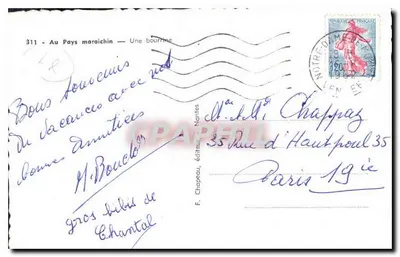 311 - Au Pays maraichin — Une bourrine
Bons souvenirs
de vacances avec nos
bonnes amitiés
gros bibis de
Chantal
F. Chapeau, éditeur, Nantes
NOTRE-DAME-DE
CARTE POSTALE
Chappaz
35 Rue d'Hautpoul 35
Paris 19 ie